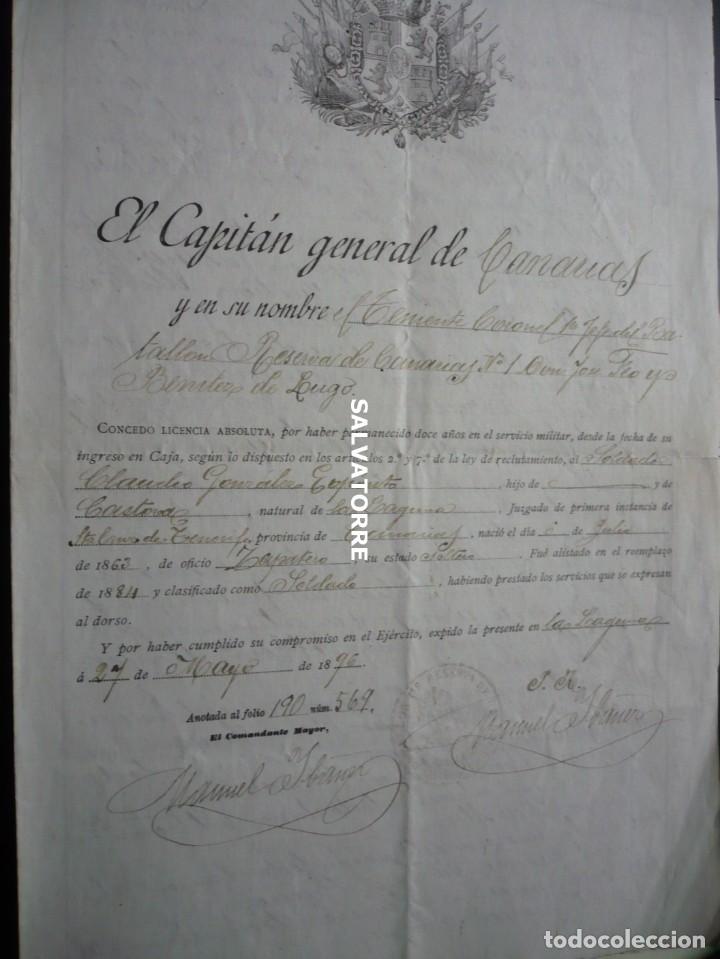 El Capitán general de Canarias
y en su nombre el Teniente Coronel 1er Jefe del Ba-
tallón Reserva de Canarias Nº 1 Don José Feo y
Benítez de Lugo.
CONCEDO LICENCIA ABSOLUTA, por haber permanecido doce años en el servicio militar, desde la fecha de su
ingreso en Caja, según lo dispuesto en los artículos 2.º y 7.º de la ley de reclutamiento, al Soldado
Claudio Gonzalez Esposito, hijo de y de
Castora, natural de la Laguna, Juzgado de primera instancia de
Sta Cruz de Tenerife provincia de Canarias, nació el día de Julio
de 1863, de oficio Zapatero, su estado Soltero. Fué alistado en el reemplazo
de 1884 y clasificado como Soldado, habiendo prestado los servicios que se expresan
al dorso.
Y por haber cumplido su compromiso en el Ejército, expido la presente en la Laguna
á 27 de Mayo de 1896.
Anotada al folio 190 núm. 569.
El Comandante Mayor,
Manuel Ibáñez
Manuel Ibáñez
SALVATORRE
todocoleccion